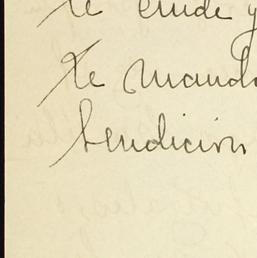 te cuide y
Te manda
bendicion